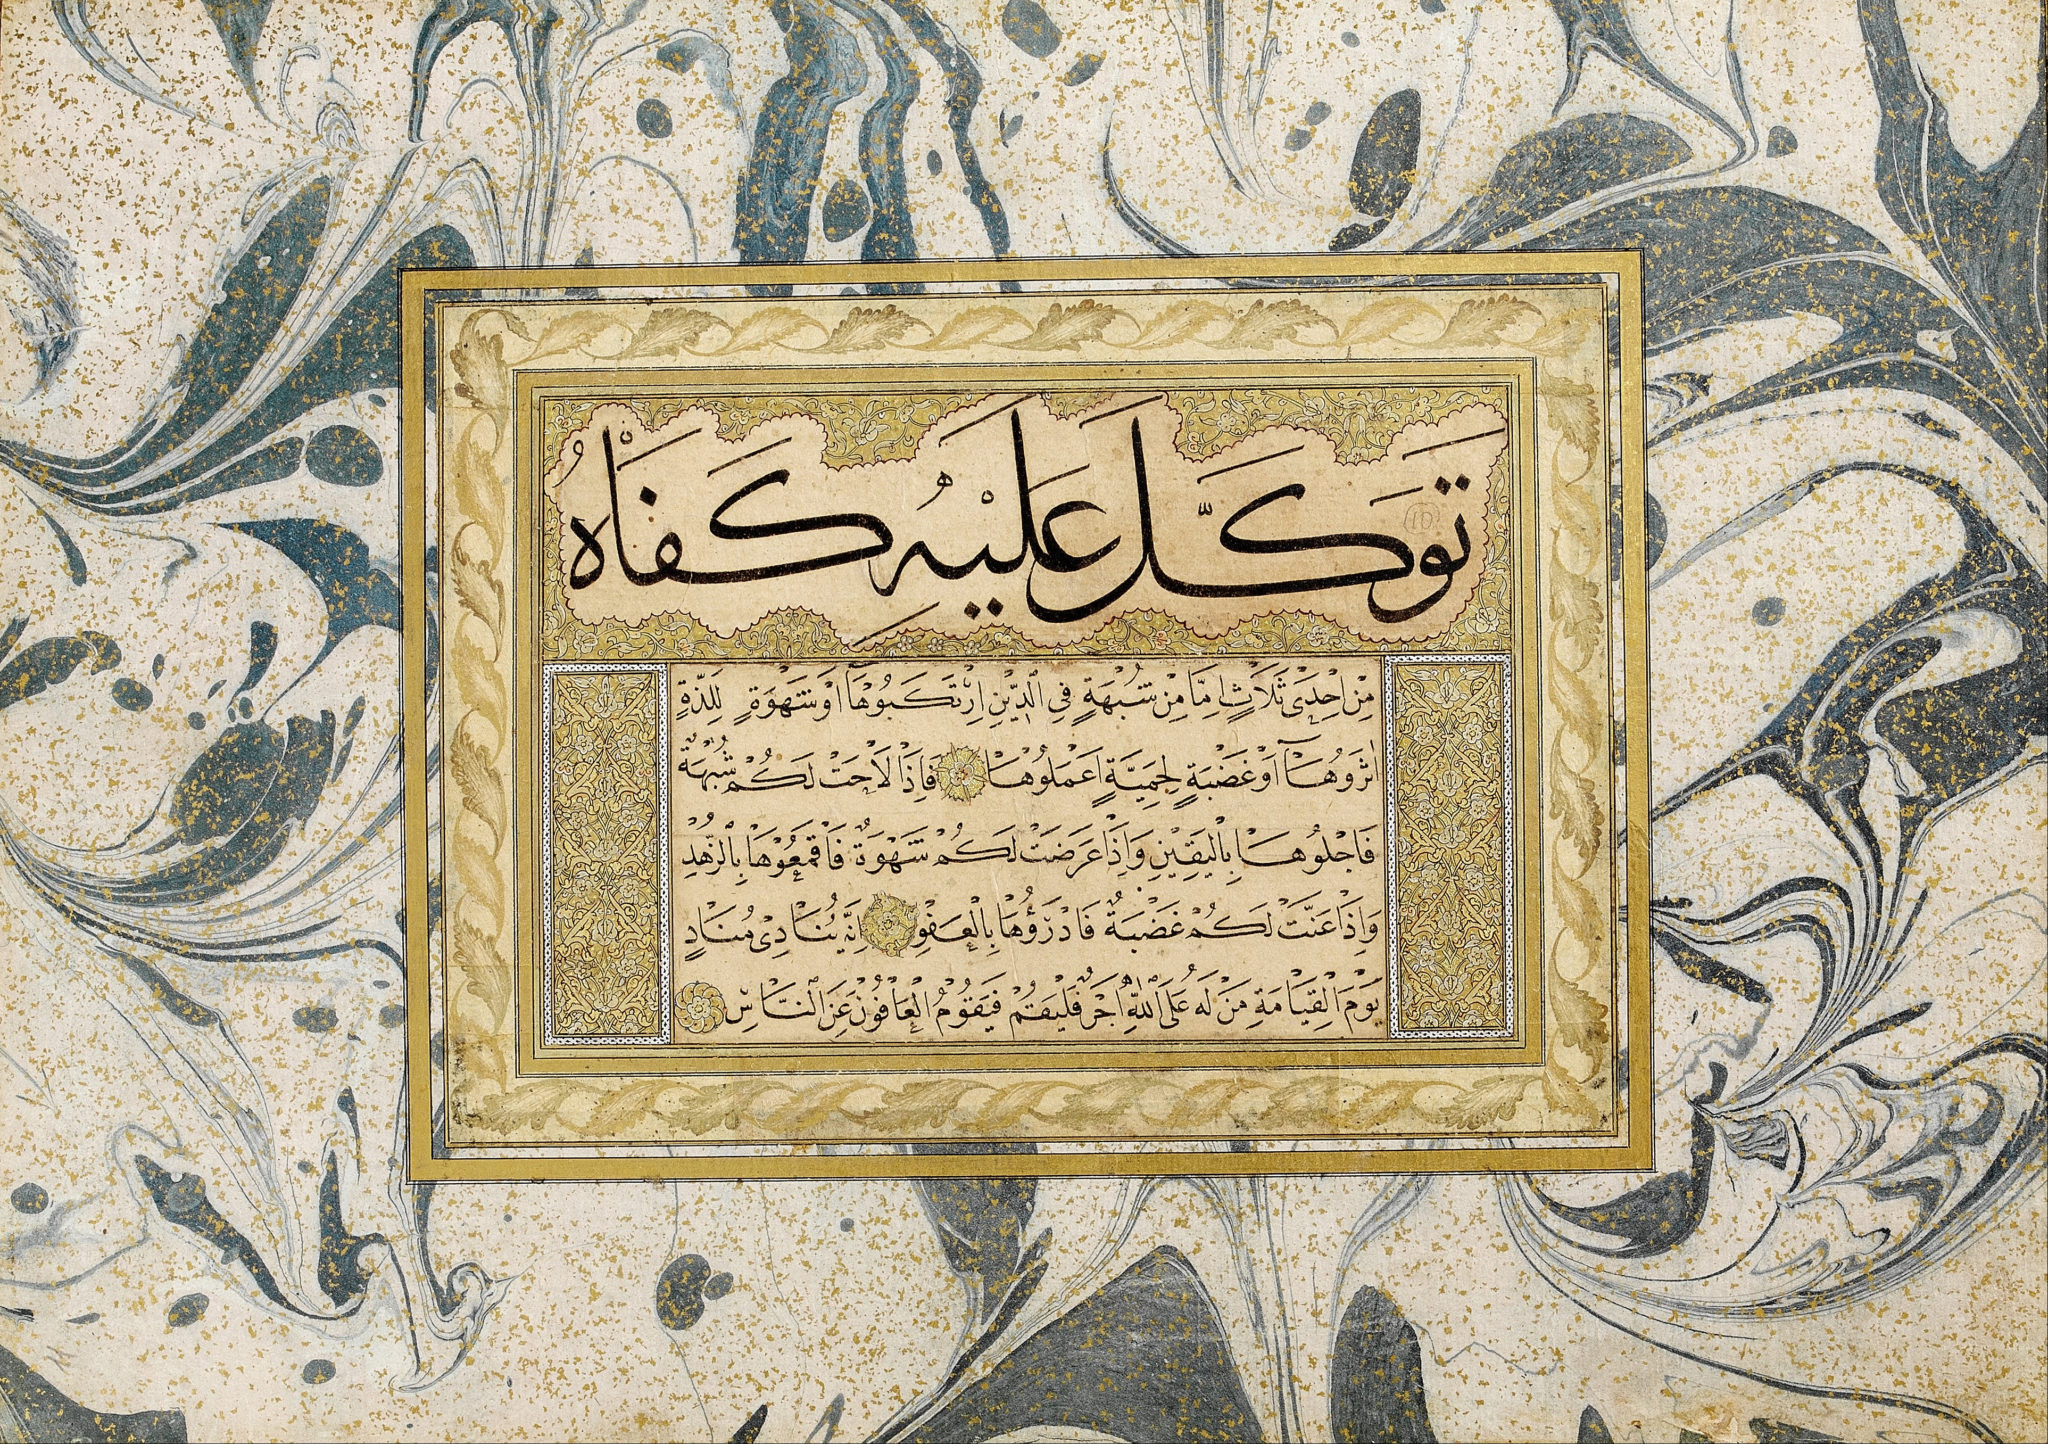 تَوَكَّلَ عَلَيْهِ كَفَاهُ
مِنْ اِحْدَى ثَلَاثٍ اِمَّا مِنْ شُبْهَةٍ فِي الدِّيْنِ اِرْتَكَبُوْهَآ اَوْ شَهْوَةٍ لِلَذَّةٍ
اٰثَرُوْهَآ اَوْ غَضْبَةٍ لِحَمِيَّةٍ اَعْمَلُوْهَا فَاِذَا لَاحَتْ لَكُمْ شُبْهَةٌ
فَاجْلُوْهَا بِالْيَقِيْنِ وَاِذَا عَرَضَتْ لَكُمْ شَهْوَةٌ فَاقْمَعُوْهَا بِالزُّهْدِ
وَاِذَا عَنَّتْ لَكُمْ غَضْبَةٌ فَادْرَؤُهَا بِالْعَفْوِ اِنَّهٗ يُنَادِيْ مُنَادٍ
يَوْمَ الْقِيَامَةِ مَنْ لَهُ عَلَى اللّٰهِ اَجْرٌ فَلْيَقُمْ فَيَقُوْمُ الْعَافُوْنَ عَنِ النَّاسِ